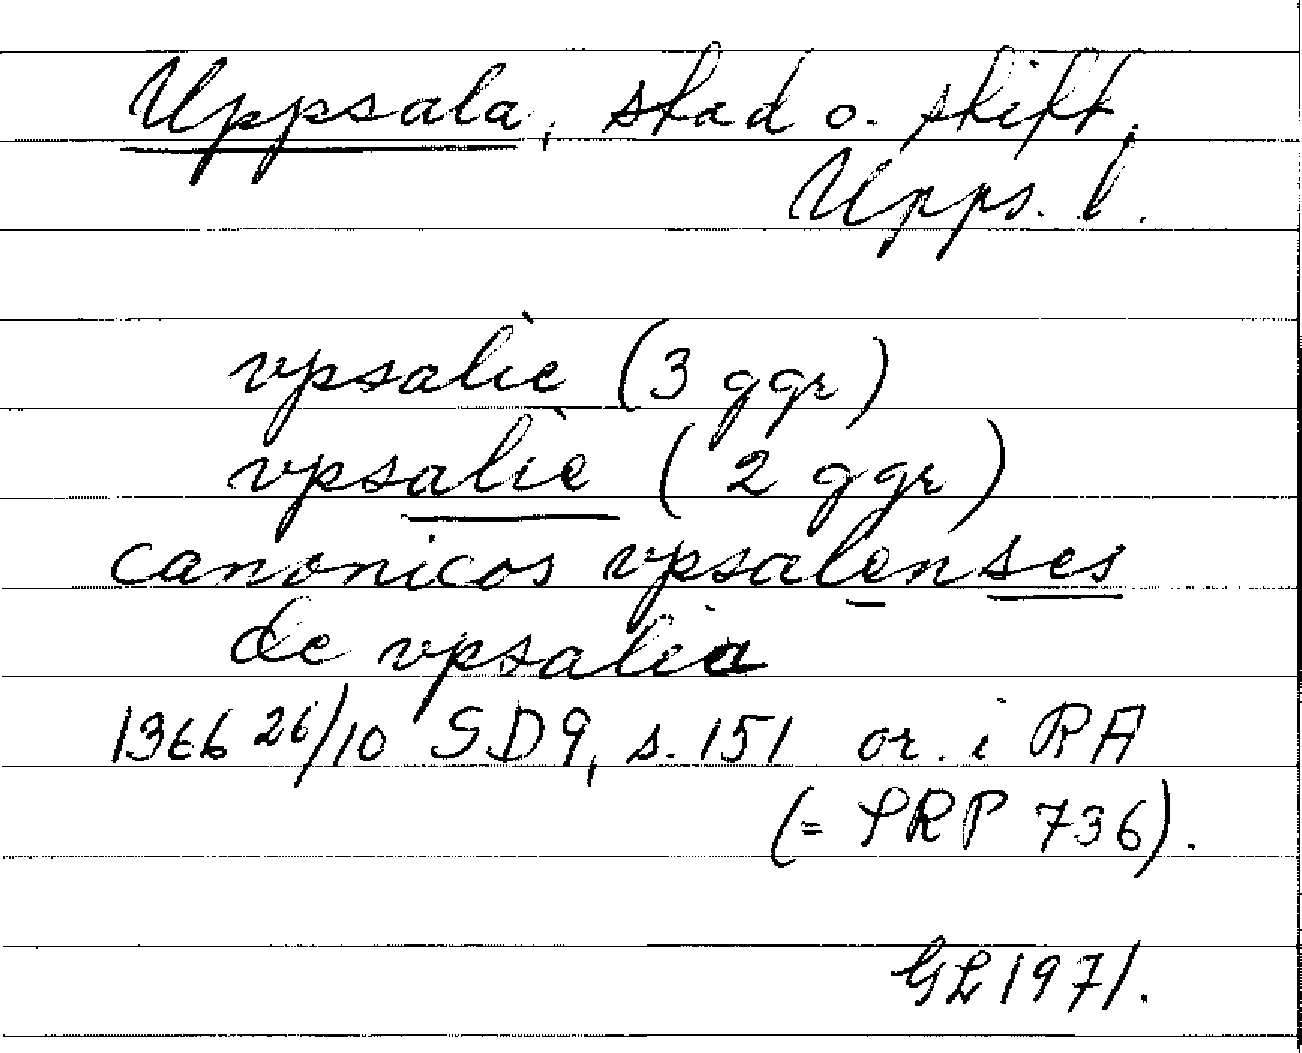 Uppsala, stad o. stift,
Upps. l.
vpsalie (3 ggr)
vpsalie (2 ggr)
canonicos vpsalenses
de vpsalia
1366 26/10 SD9, s. 151 or. i RA
(= SRP 736).
GL 1971.